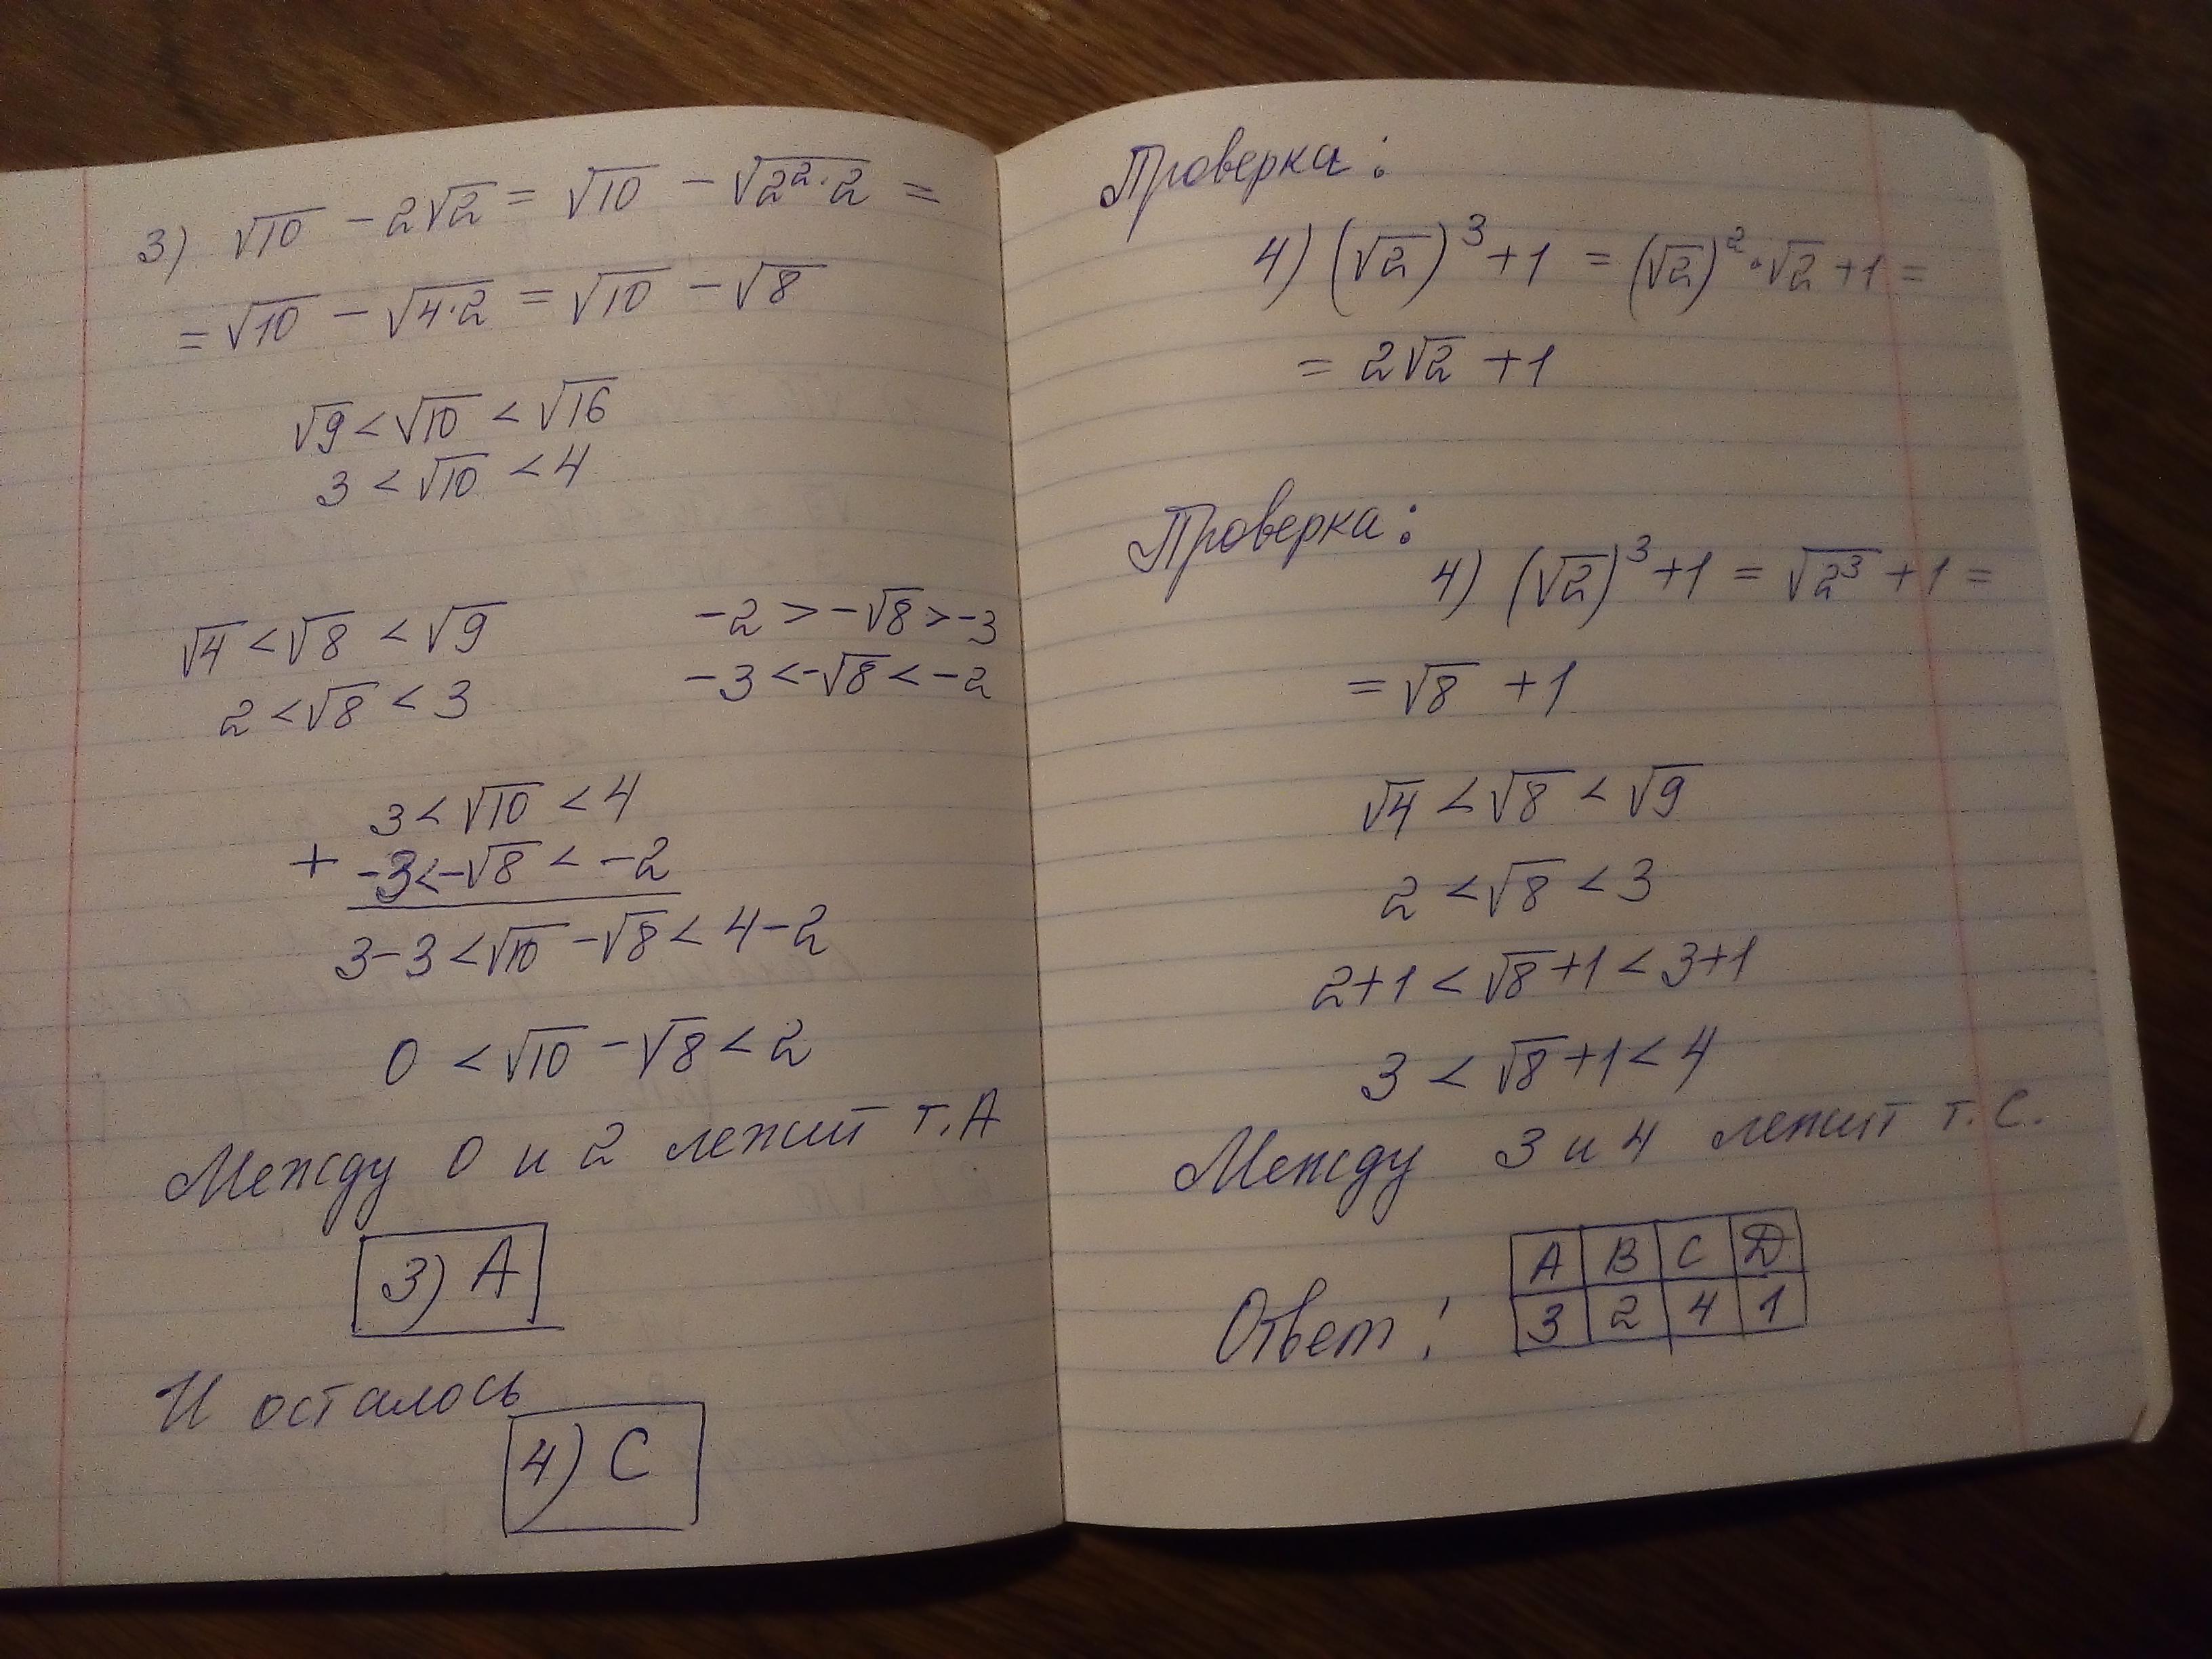 3) √10 − 2√2 = √10 − √(2²·2) =
= √10 − √(4·2) = √10 − √8
√9 < √10 < √16
3 < √10 < 4
√4 < √8 < √9
2 < √8 < 3
−2 > −√8 > −3
−3 < −√8 < −2
3 < √10 < 4
+ −3 < −√8 < −2
3−3 < √10 − √8 < 4−2
0 < √10 − √8 < 2
Между 0 и 2 лежит т. А
3) А
И осталось
4) С
Проверка:
4) (√2)³ + 1 = (√2)² · √2 + 1 =
= 2√2 + 1
Проверка:
4) (√2)³ + 1 = √(2³) + 1 =
= √8 + 1
√4 < √8 < √9
2 < √8 < 3
2+1 < √8 + 1 < 3+1
3 < √8 + 1 < 4
Между 3 и 4 лежит т. С.
Ответ:
A B C D
3 2 4 1